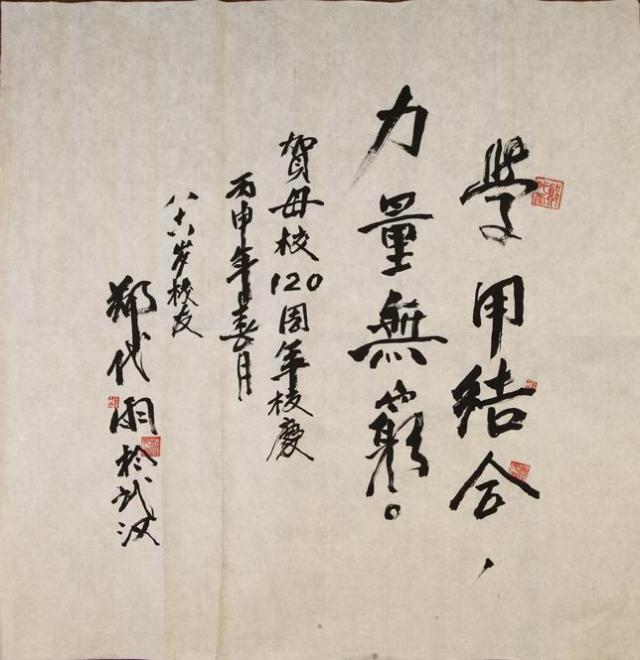 學用结合，
力量無窮。
賀母校120周年校慶
丙申年春月
八十八岁校友
郑代雨於武汉